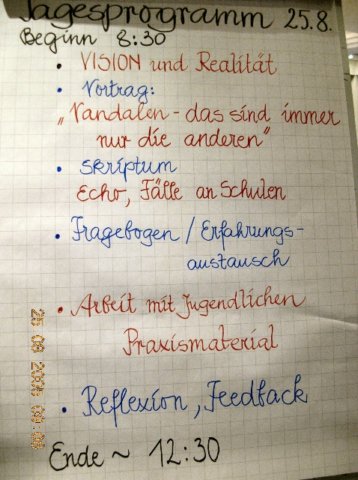 Tagesprogramm 25.8.
Beginn 8:30
• VISION und Realität
• Vortrag:
„Vandalen - das sind immer
nur die anderen"
• Skriptum
Echo, Fälle an Schulen
• Fragebogen / Erfahrungs-
austausch
• Arbeit mit Jugendlichen
Praxismaterial
• Reflexion, Feedback
Ende ~ 12:30